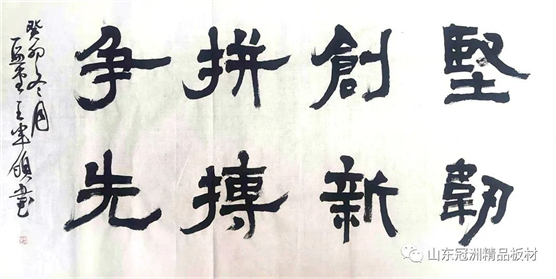 堅韌
創新
拼搏
争先
癸卯冬月
山东冠洲精品板材